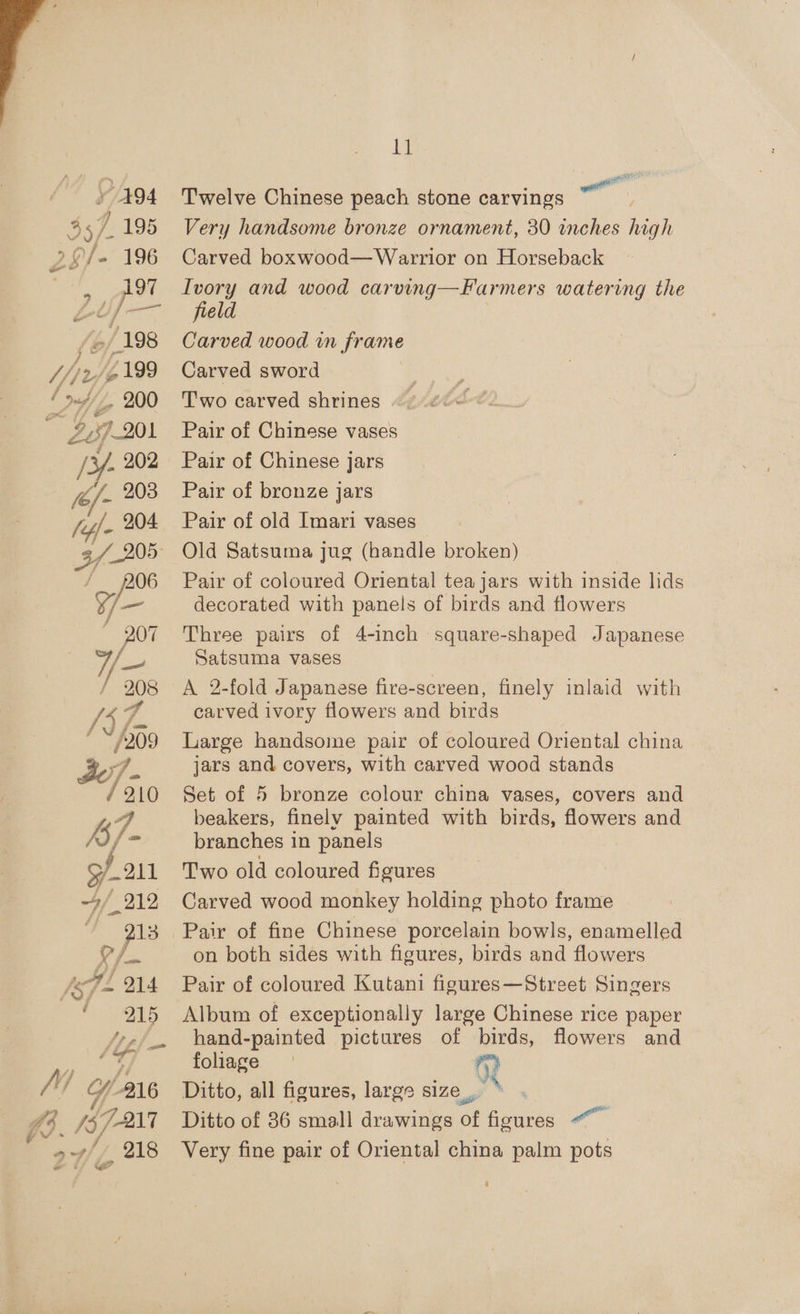 11
194 Twelve Chinese peach stone carvings
35/- 195 Very handsome bronze ornament, 30 inches high
28/- 196 Carved boxwood—Warrior on Horseback
197 Ivory and wood carving—Farmers watering the
field
198 Carved wood in frame
199 Carved sword
200 Two carved shrines
201 Pair of Chinese vases
202 Pair of Chinese jars
203 Pair of bronze jars
204 Pair of old Imari vases
205 Old Satsuma jug (handle broken)
206 Pair of coloured Oriental tea jars with inside lids
decorated with panels of birds and flowers
207 Three pairs of 4-inch square-shaped Japanese
Satsuma vases
208 A 2-fold Japanese fire-screen, finely inlaid with
carved ivory flowers and birds
209 Large handsome pair of coloured Oriental china
jars and covers, with carved wood stands
210 Set of 5 bronze colour china vases, covers and
beakers, finely painted with birds, flowers and
branches in panels
211 Two old coloured figures
212 Carved wood monkey holding photo frame
213 Pair of fine Chinese porcelain bowls, enamelled
on both sides with figures, birds and flowers
214 Pair of coloured Kutani figures—Street Singers
215 Album of exceptionally large Chinese rice paper
hand-painted pictures of birds, flowers and
foliage
216 Ditto, all figures, large size
217 Ditto of 36 small drawings of figures
218 Very fine pair of Oriental china palm pots